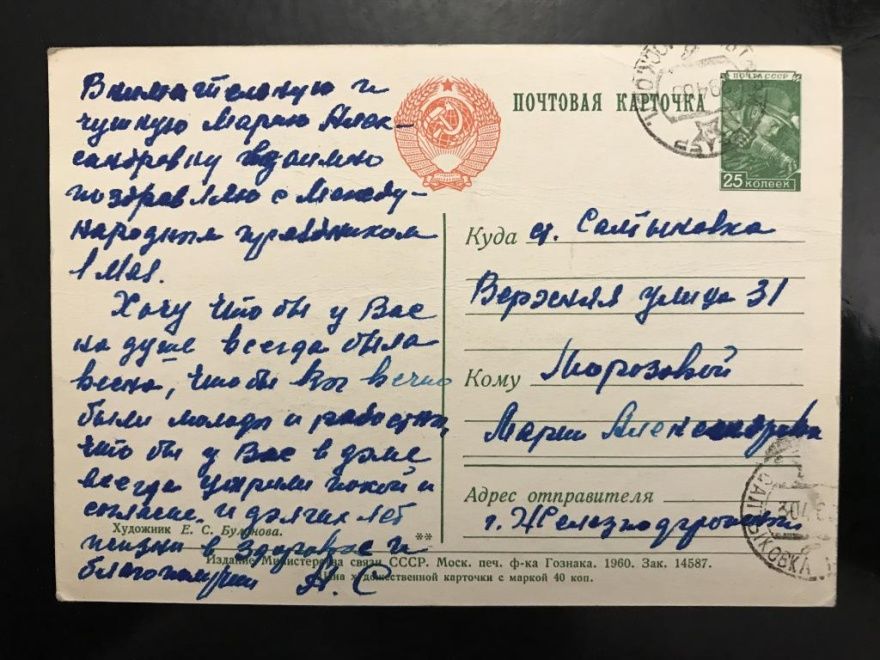 Внимательную и
чуткую Марию Алек-
сандровну взаимно
поздравляю с Между-
народным праздником
1 Мая.
Хочу что бы у Вас
на душе всегда была
весна, что бы Вы вечно
были молоды и радостны,
что бы у Вас в доме
всегда царили покой и
согласие и долгих лет
жизни в здоровье и
благополучии А. С
Художник Е. С. Буланова.
**
ПОЧТОВАЯ КАРТОЧКА
ПОЧТА СССР
25 КОПЕЕК
Куда ст. Салтыковка
Верхняя улица 31
Кому Морозовой
Марии Александровне
Адрес отправителя
г. Железнодорожный
САЛТЫКОВКА
Издание Министерства связи СССР. Моск. печ. ф-ка Гознака. 1960. Зак. 14587.
Цена художественной карточки с маркой 40 коп.